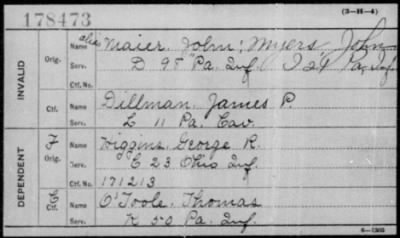 178473
(3-H-4)
alias
Name Maier, John; Myers, John
INVALID
Orig.
Serv. D 98" Pa. Inf. I 24 Pa. Inf.
Ctf. No.
Ctf.
Name Dillman, James P.
Serv. L 11 Pa. Cav.
DEPENDENT
F
Orig.
Name Wiggins, George R.
Serv. C 23 Ohio Inf.
Ctf. No. 171213
C
Ctf.
Name O'Toole, Thomas
Serv. K 50 Pa. Inf.